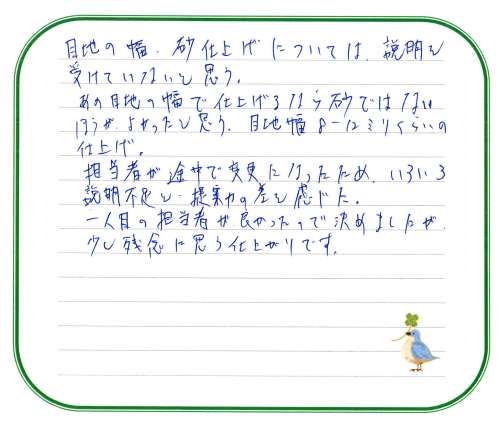 目地の幅、砂仕上げについては、説明を
受けていないと思う。
あの目地の幅で仕上げるなら砂ではない
ほうが、よかったと思う。目地幅8-12ミリくらいの
仕上げ。
担当者が途中で変更になったため、いろいろ
説明不足と、提案力の差を感じた。
一人目の担当者が良かったので決めましたが、
少し残念に思う仕上がりです。